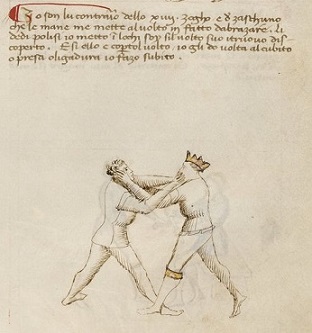 Io son lu contrario dello xiiii zogho e d zaschuno
che le mane me mette al volto in fatto dabrazare. Li
dedi polisi io metto i lochi soy sil volto suo truovo dis-
coperto. E si ello e coptol volto. io gli do volta al cubito
o presa o ligadura io fazo subito.